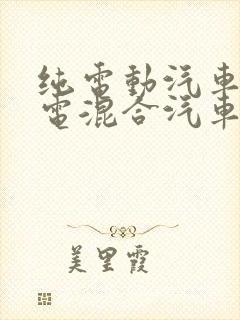 纯電動汽車
電混合汽車
美里霞